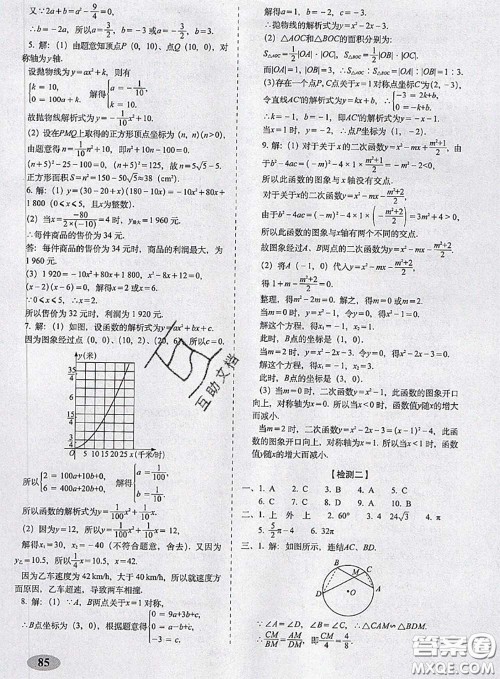 又∵2a+b=a²-9/4=0,
∴b=-2a, 所以a=3/2, b=-3或a=-3/2, b=3.
5. 解: (1) 由题意知顶点P (0, 10), 点Q (10, 0), 对
称轴为y轴.
设抛物线为y=ax²+k, 则有
{k=10, 0=100a+k. 解得{a=-1/10, k=10.
故抛物线解析式为y=-1/10x²+10.
(2) 设在PMQ上取得的正方形顶点坐标为 (n, n)(n>0)
由题意得n=-1/10n²+10, ∴n²+10n-100=0.
(n+5)²-25-100=0, (n+5)²=125, 故n=5√5-5.
6. 解: (1) y=(30-20+x)(180-10x)=-10x²+80x+
1 800 (0⩽x⩽5, 且x为整数).
(2) 当x=-80/(2×(-10))=4时, y最大=1 960元.
∴每件商品的售价为34元.
答: 每件商品的售价为34元时, 商品的利润最大, 为
1 960元.
(3) 1 920=-10x²+80x+1 800, x²-8x+12=0,
即(x-2)(x-6)=0, 解得x=2或x=6.
∵0⩽x⩽5, ∴x=2.
所以售价为32元时, 利润为1 920元.
7. 解: (1) 如图, 设函数的解析式为y=ax²+bx+c.
因为图象经过点(0, 0), (10, 2), (20, 6)
c=0.
y(米)
35
30
25
20
15
10
5
0 5 10 15 20 25 x(千米/时)
所以{2=100a+10b+0, 6=400a+20b+0. 解得{a=1/100, b=1/10.
所以函数的解析式为y=1/100x²+1/10x.
(2) 因为y=12, 所以1/100x²+1/10x=12,
解得x₁=30, x₂=-40 (不符合题意, 舍去). 又因为
y乙=10.5, 所以1/4x=10.5, x=42.
因为乙车速度为42 km/h, 大于40 km/h, 而甲车速度
为30 km/h, 小于40 km/h. 所以, 就速度方面原因,
乙车超速行驶, 导致两车相撞.
8. 解: (1) ∵A, B两点关于x=1对称,
∴B点坐标为 (3, 0), 根据题意得{0=9a+3b+c, 0=a-b+c, -3=c,
85
解得a=1, b=-2, c=-3.
∴抛物线的解析式为y=x²-2x-3.
(2) △AOC和△BOC的面积分别为:
S△AOC=1/2|OA|·|OC|, S△BOC=1/2|OB|·|OC|,
而|OA|=1, |OB|=3, ∴S△AOC:S△BOC=|OA|:|OB|=1:3.
(3)存在一个点P, C点关于x=1对称点坐标C′为(2, -3),
令直线AC′的解析式为y=kx+b, ∴{-3=2k+b, 0=-k+b,
∴k=-1, b=-1, 即AC′的解析式为y=-x-1.
当x=1时, y=-2, ∴P点坐标为 (1, -2).
9. 解: (1) 对于关于x的二次函数y=x²-mx+(m²+1)/2, 由
于b²-4ac=(-m)²-4×1×(m²+1)/2=-m²-2<0,
所以此函数的图象与x轴没有交点.
对于关于x的二次函数y=x²-mx-(m²+2)/2,
由于b²-4ac=(-m)²-4×1×(-(m²+2)/2)=3m²+4>0,
所以此函数的图象与x轴有两个不同的交点.
故图象经过A, B两点的二次函数为y=x²-mx-(m²+2)/2.
(2) 将A (-1, 0) 代入y=x²-mx-(m²+2)/2,
得1+m-(m²+2)/2=0.
整理, 得m²-2m=0. 解得m=0或m=2.
当m=0时, y=x²-1. 令y=0, 得x²-1=0.
解这个方程, 得x₁=-1, x₂=1.
此时, B点的坐标是B (1, 0).
当m=2时, y=x²-2x-3. 令y=0, 得x²-2x-3=0.
解这个方程, 得x₁=-1, x₂=3.
此时, B点的坐标是B (3, 0).
(3) 当m=0时, 二次函数为y=x²-1, 此函数的图象开口
向上, 对称轴为x=0, 所以当x<0时, 函数值y随x的增大
而减小.
当m=2时, 二次函数为y=x²-2x-3=(x-1)²-4, 此函
数的图象开口向上, 对称轴为x=1, 所以当x<1时, 函
数值y随x的增大而减小.
【检测二】
一、1. A 2. D 3. B 4. A 5. C
6. C 7. C 8. B 9. C 10. C
二、1. 上 外 上 2. 60° 3. 4 24√3 4. π
5. 5/2π-4 6. 32π
三、1. 解: 如图所示, 连结AC, BD.
A
D
M
C
O
B
∵∠A=∠D, ∠C=∠B, ∴△CAM∽△BDM.
∴CM/BM=AM/DM, 即CM/4=4/8.
互助文档
答案圈
MXQE.COM